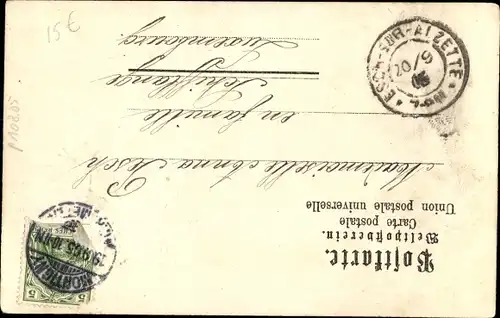 Postkarte.
Weltpostverein.
Carte postale
Union postale universelle
Mademoiselle Anna Resch
en famille
Schifflange
Luxembourg.
ESCH-SUR-ALZETTE
20/9
05
5
5
19.9.05
15€
P10205